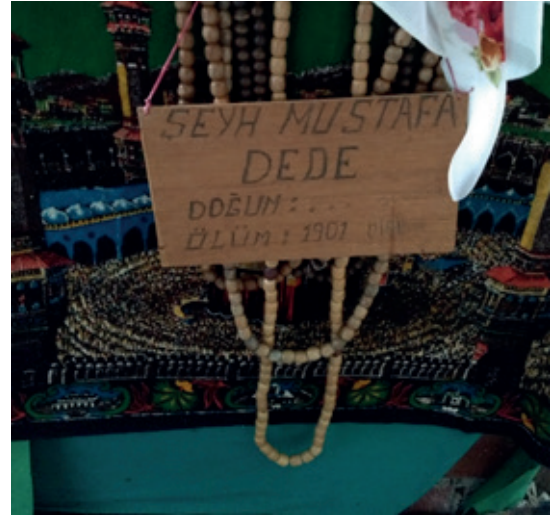 ŞEYH MUSTAFA
DEDE
DOĞUN : . . .
ÖLÜM : 1901